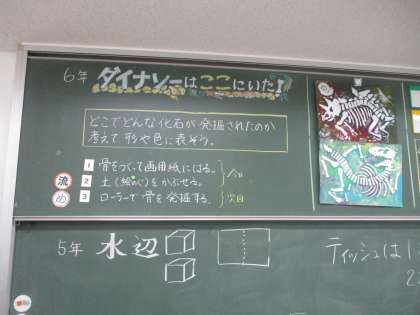 6年 ダイナソーはここにいた!
どこでどんな化石が発掘されたのか
考えて形や色に表そう。
流 め
1 骨をつくって画用紙にはる。
2 土(絵の具)をかぶせる。
今日
3 ローラーで骨を発掘する。
次回
5年 水辺
ティッシュは1
2